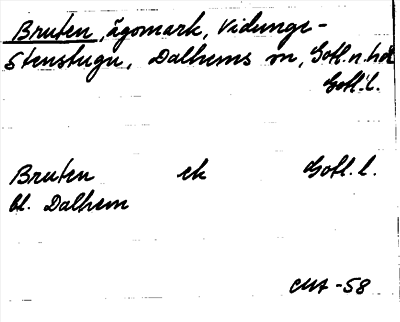 Bruten, ägomark, Vidunge-
Stenstugu, Dalhems sn, Gotl. n. hd
Gotl. l.
Bruten ek Gotl. l.
bl. Dalhem
CMA -58